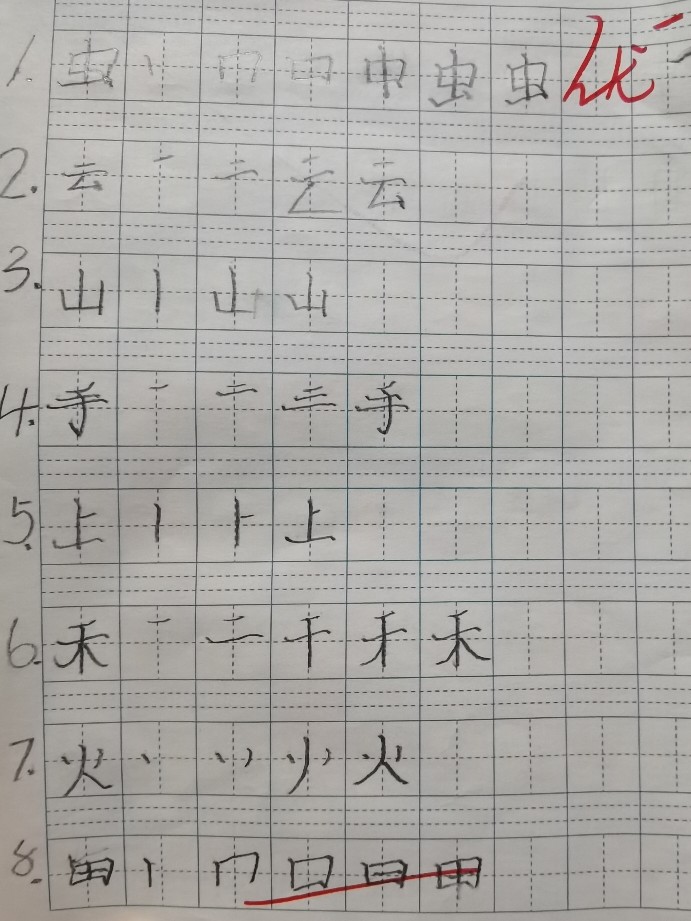 1. 虫 丨 冂 口 中 虫 虫 优
2. 云 一 二 云 云
3. 山 丨 山 山
4. 手 一 二 三 手
5. 上 丨 卜 上
6. 禾 一 二 千 禾
7. 火 丶 丷 火
8. 田 丨 冂 口 日 田